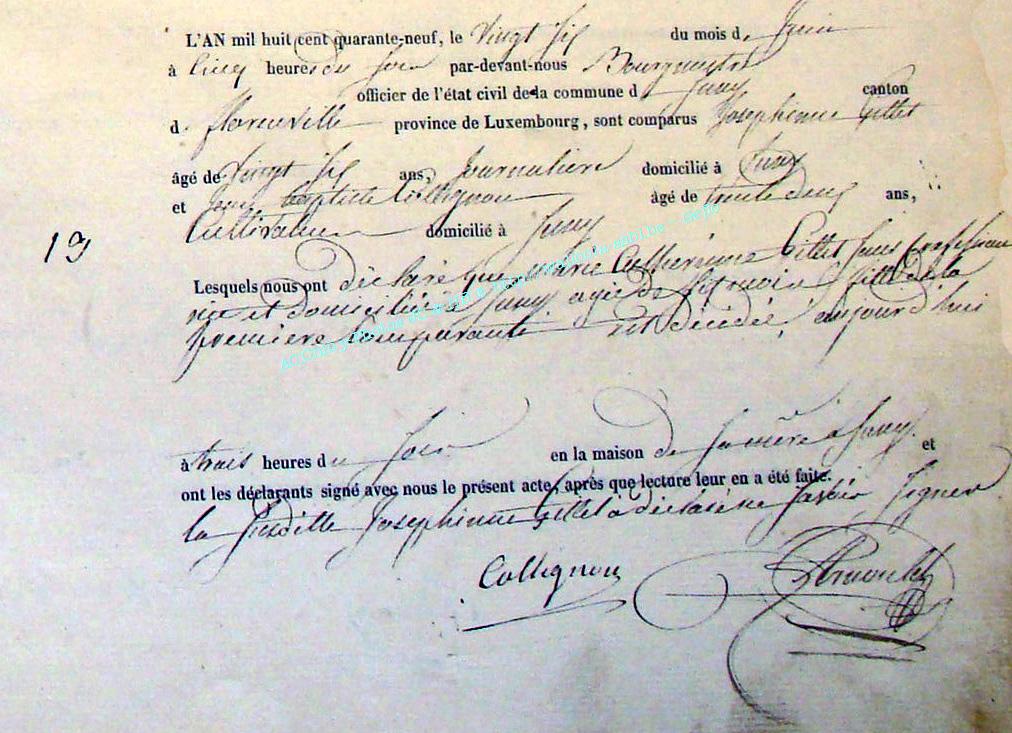 L'AN mil huit cent quarante-neuf, le Vingt six du mois de Juin
à Cinq heures du Soir par-devant-nous Bourgmestre
officier de l'état civil de la commune d Jamoigne canton
d Florenville province de Luxembourg, sont comparus Josephinne Gillet
âgé de Vingt six ans, Journaliere domicilié à
et Jean baptiste Collignon âgé de trente deux ans,
Cultivateur domicilié à
19
Lesquels nous ont déclaré que marie Catherinne Gillet sans profession
née et domiciliée à agée de fille de la
premiere Comparante est décédée, aujourd'hui
à trois heures du Soir en la maison de Sa mère à et
ont les déclarants signé avec nous le présent acte, après que lecture leur en a été faite.
la Susditte Josephinne Gillet a déclaré ne Savoir Signer
Collignon